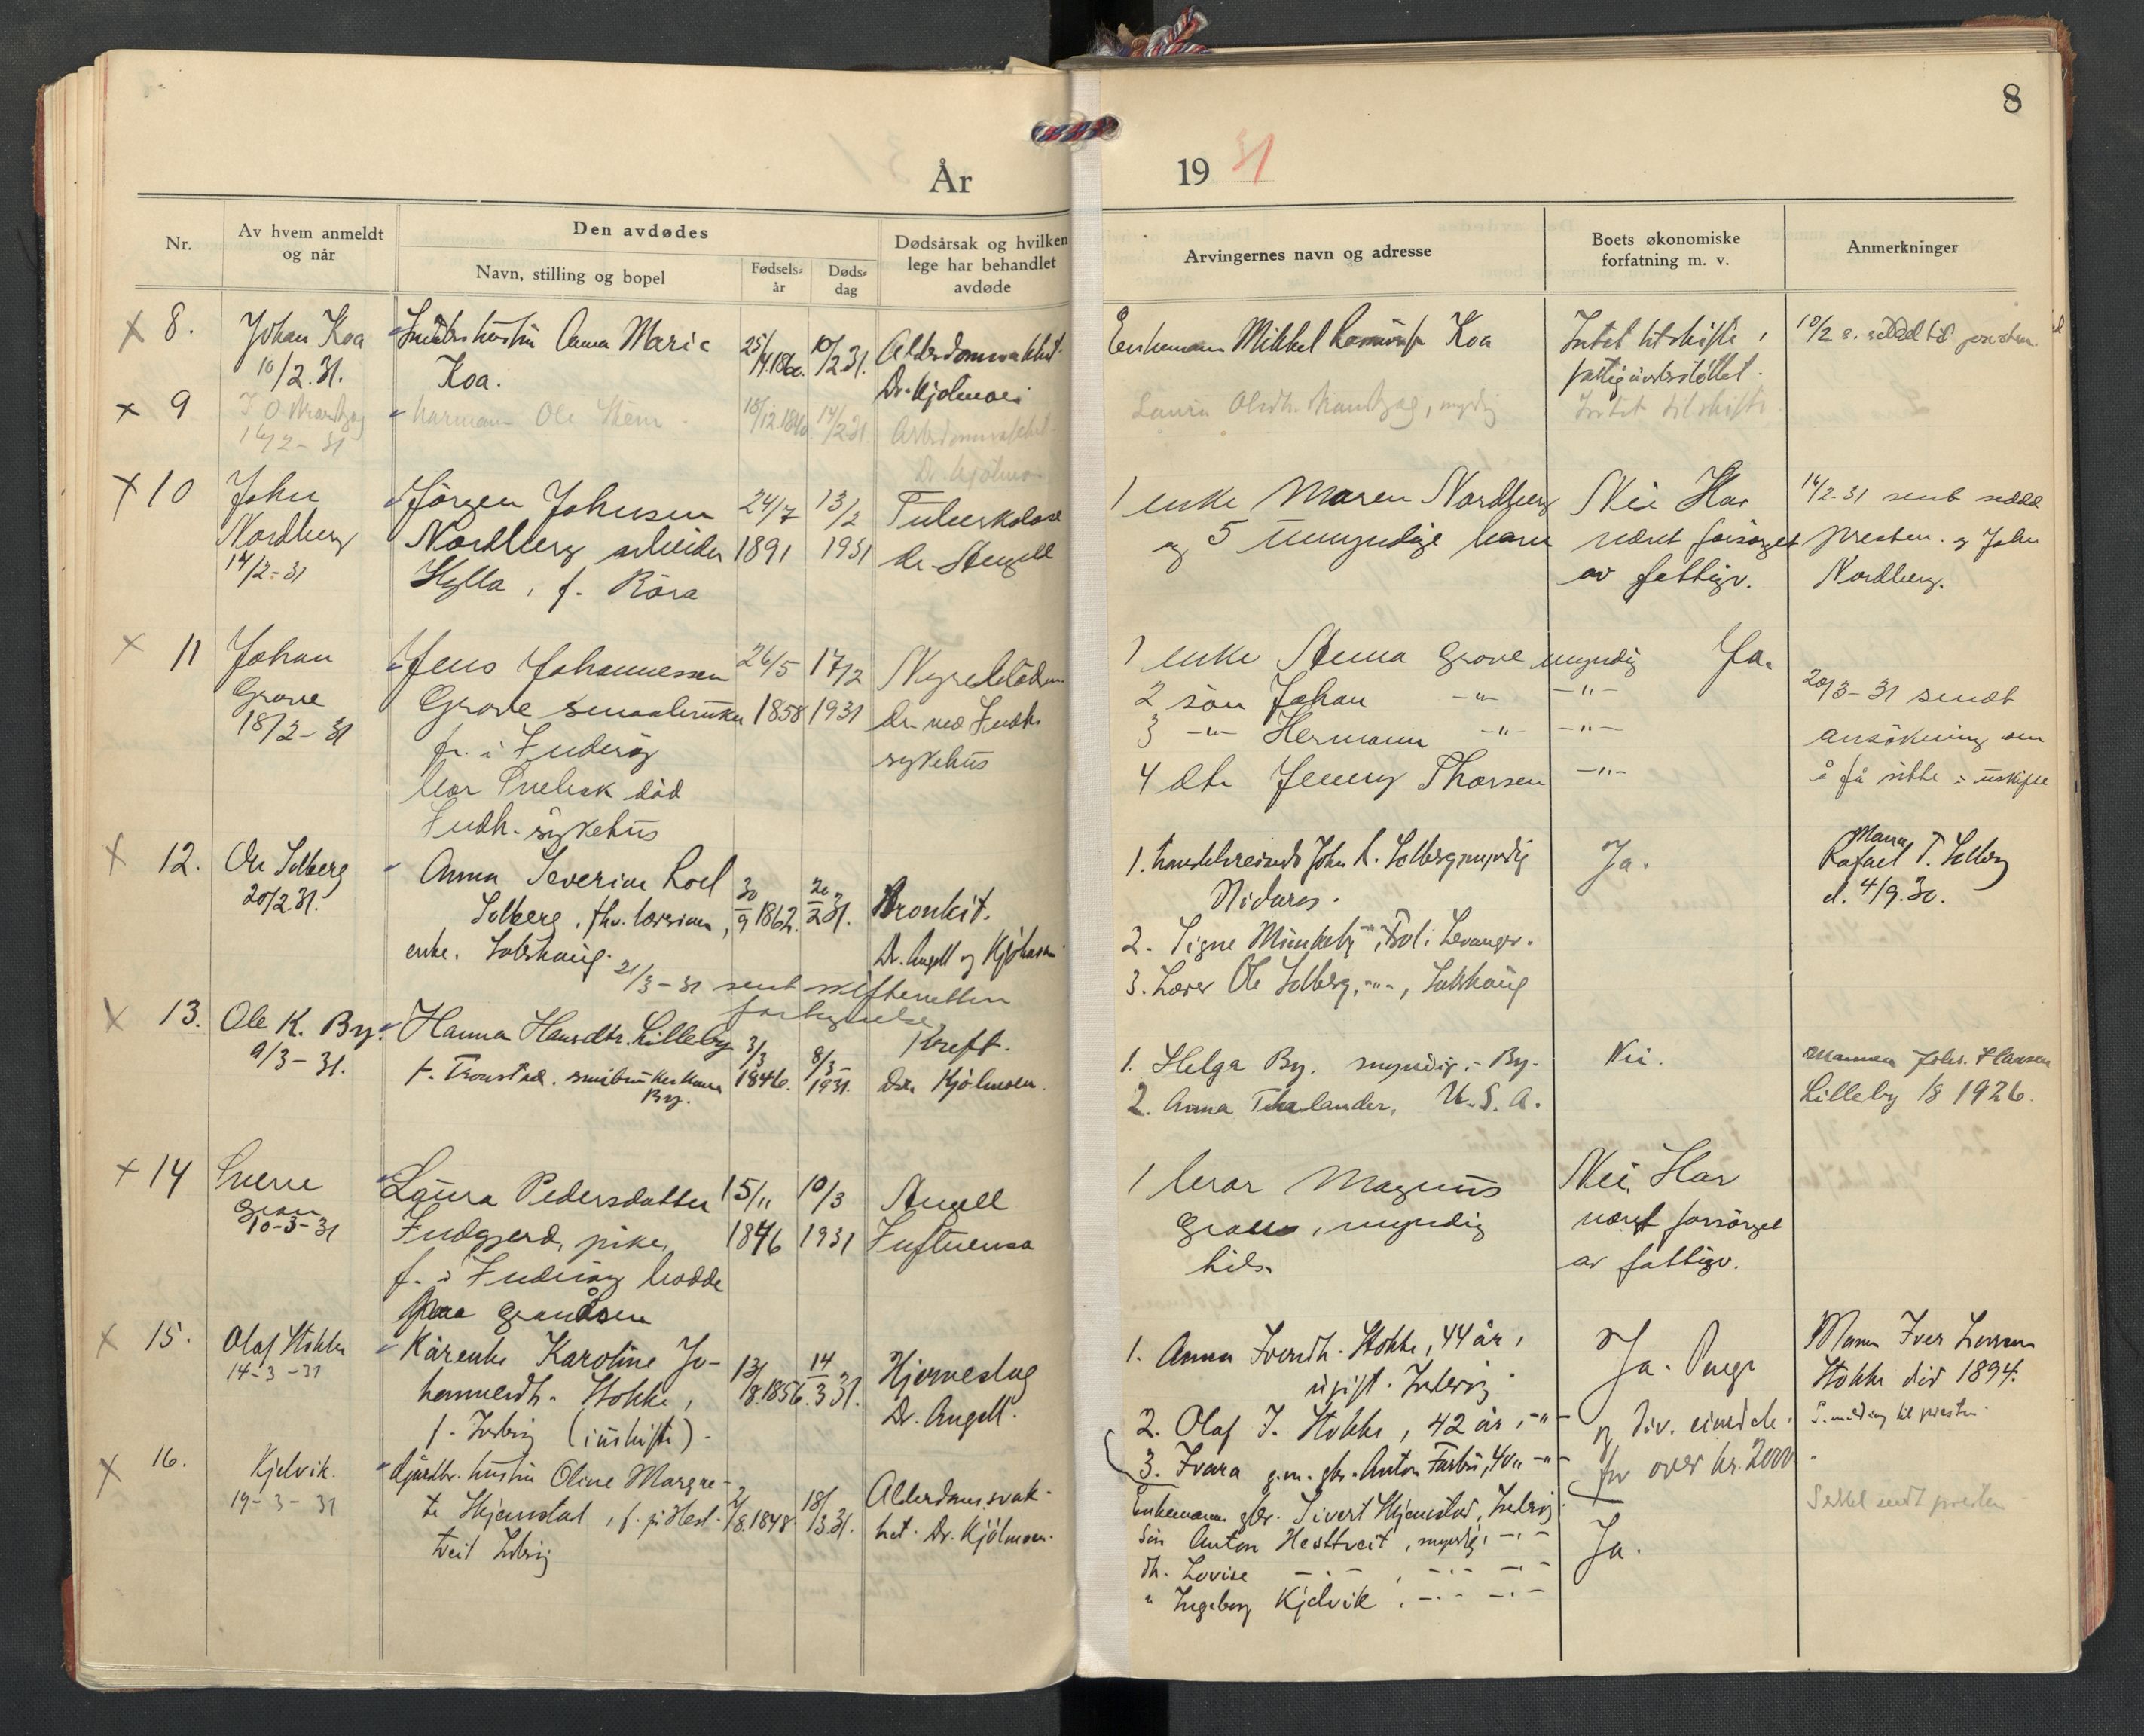 8
År
19 31
Nr.
Av hvem anmeldt og når
Den avdødes
Navn, stilling og bopel
Fødsels-år
Døds-dag
Dødsårsak og hvilken lege har behandlet avdøde
Arvingernes navn og adresse
Boets økonomiske forfatning m. v.
Anmerkninger
x 8.
Johan Koa
10/2.31.
Anna Marie
Koa.
25/4.1860.
10/2.31.
Dr. Kjölmoen
Enkemann Mikkel Koa
Intet til skifte,
fattigunderstöttet.
10/2 s. seddel til presten.
x 9
14/2 - 31
Ole
/12.1840
14/2 31.
Dr. Kjölmo
Laura Olsdtr. myndig
Intet til skifte.
x 10
John
Nordberg
14/2 - 31
Jörgen Johnsen
Nordberg arbeider
Hylla, f. Röra
24/7
1891
13/2
1931
Tuberkolose
dr. Angell
1 enke Maren Nordberg
og 5 umyndige barn
Nei Har
været forsörget
av fattigv.
14/2-31 sent seddel
presten. og John
Nordberg.
x 11
Johan
Grove
18/2 - 31
Jens Johannessen
Grove smaabruker
fr. i Inderöy
bor död
Indh. sykehus
26/5
1858
17/2
1931
dr. ved Indh.
sykehus
1 enke Anna Grove myndig
2 sön Johan -"- -"-
3 -"- Hermann -"- -"-
4 dtr Jenny Thorsen -"-
Ja.
20/3 - 31 sendt
ansökning om
å få sitte i uskifte
x 12.
Ole Solberg
20/2.31.
Anna Severine
Solberg, fhv.
enke.
30/9 1862.
20/2 31.
Bronkit.
Dr. Angell og Kjölmoen
21/3 - 31 sent skifteretten
1. John Solberg, myndig
Nidaros.
2. Signe Munkeby -"-, Levanger.
3. Lærer Ole Solberg, -"-,
Ja.
Mann
Rafael T. Solberg
d. 4/9.30.
x 13.
Ole K. By.
9/3 - 31.
Hanna Hansdtr. Lilleby
f. Tronstad.
By.
3/3
1846.
8/3 -
1931.
Kreft.
Kjölmoen.
1. Helga By, myndig, - By.
2. Anna U.S.A.
Nei.
Mannen Johs. Hansen
Lilleby 1/8 1926.
x 14
Sverre
Gran
10-3-31
Laura Pedersdatter
Indgjerd, pike,
f. i Inderöy bodde
paa
15/11
1846
10/3
1931
Angell
Influensa
1 bror Magnus
myndig
Nei. Har
været forsörget
av fattigv.
x 15.
Olaf Stokke
14-3-31
Kårenke Karoline Jo-
hannesdtr. Stokke,
f. Inderöy (uskifte).
13/8.1856.
14/3 31.
Hjerneslag
Dr. Angell.
1. Anna Iversdtr. Stokke, 44 år,
ugift. Inderöy
2. Olaf I. Stokke, 42 år, -"-
3. Ivara g.m. gbr. Anton 40 " -"-
Ja. Penger
og div. eiendele
for over kr. 2000.
Mann Iver
Stokke död 1894.
S. melding til presten
x 16.
Kjelvik.
19-3-31
Gårdbr. hustru Oline Margre-
te Hjemstad, f. på Hest-
tveit Inderöy
2/8.1848.
18/3.31.
Alderdomssvak-
het. Dr. Kjölmoen.
Enkemann gbr. Sivert Hjemstad, Inderöy.
Sön Anton Hesttveit, myndig,
dtr. Lovise
" Ingeborg Kjelvik,
Ja.
Seddel sendt presten